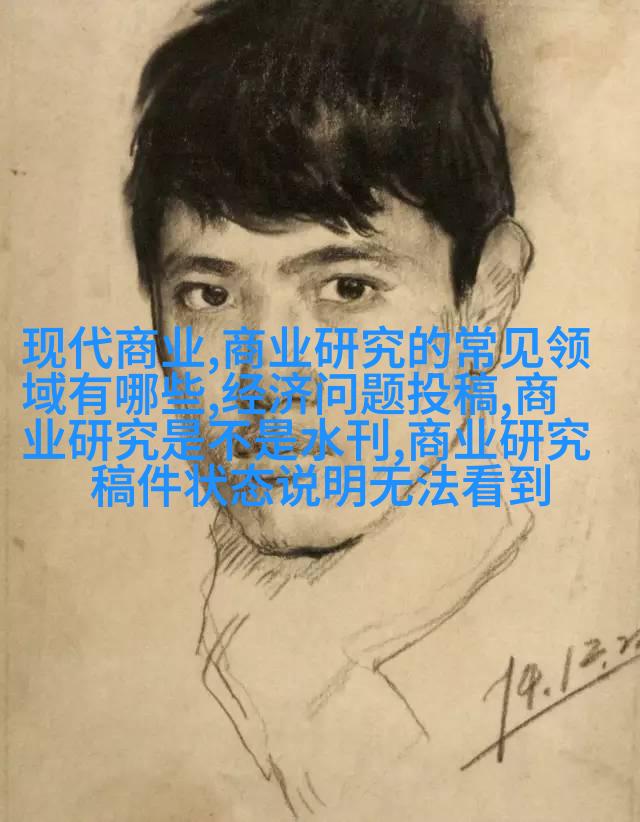 现代商业,商业研究的常见领
域有哪些,经济问题投稿,商
业研究是不是水刊,商业研究
稿件状态说明无法看到